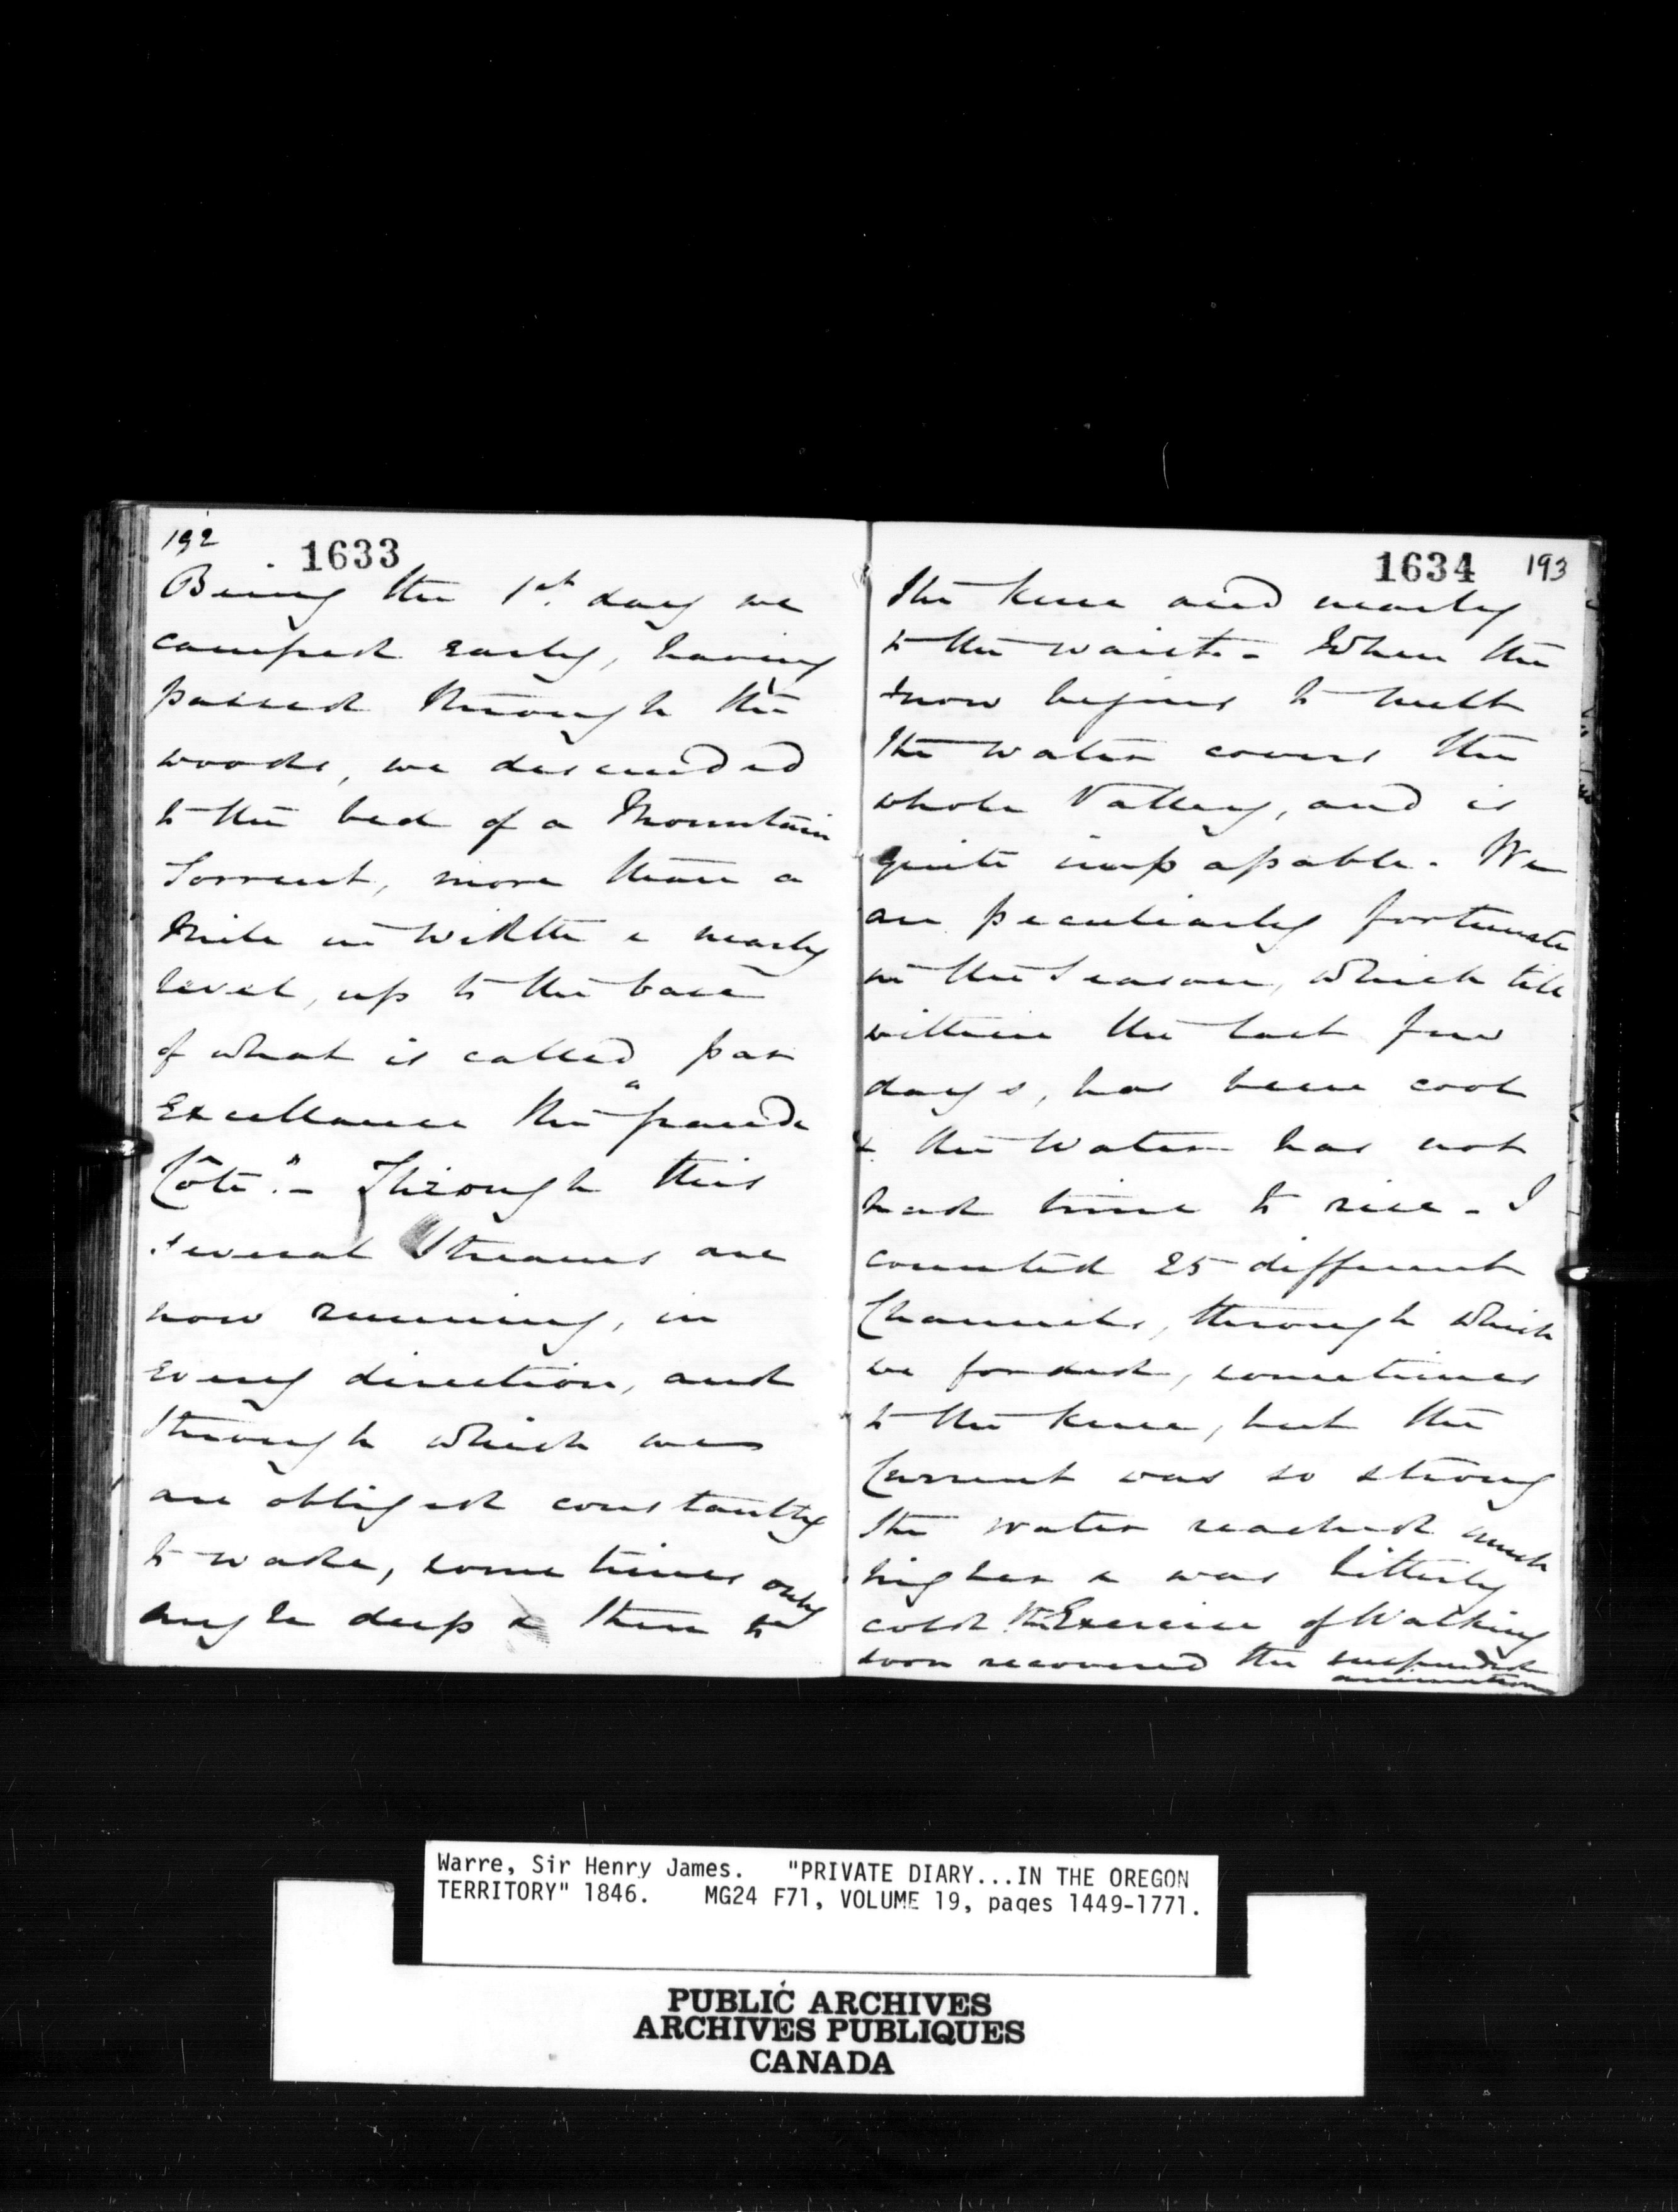 192
1633
Being the 1st. day we
camped early, having
passed through the
woods, we descended
to the bed of a Mountain
Torrent, more than a
Mile in width & nearly
level, up to the base
of what is called par
Excellance the "grande
Côte". - Through this
several Streams are
now running, in
every direction, and
through which we
are obliged constantly
to wade, some times only
ancle deep & then to
1634
193
the knee and nearly
to the waist - When the
snow begins to melt
the water covers the
whole Valley, and is
quite impassable. We
are peculiarly fortunate
in the Season, which till
within the last few
days, has been cool
& the Water has not
had time to rise - I
counted 25 different
Channels, through which
we forded, sometimes
to the knee, but the
Current was so strong
the water reached much
higher & was bitterly
cold. The Exercise of Walking
soon recovered the suspended
animation
Warre, Sir Henry James. "PRIVATE DIARY...IN THE OREGON
TERRITORY" 1846. MG24 F71, VOLUME 19, pages 1449-1771.
PUBLIC ARCHIVES
ARCHIVES PUBLIQUES
CANADA